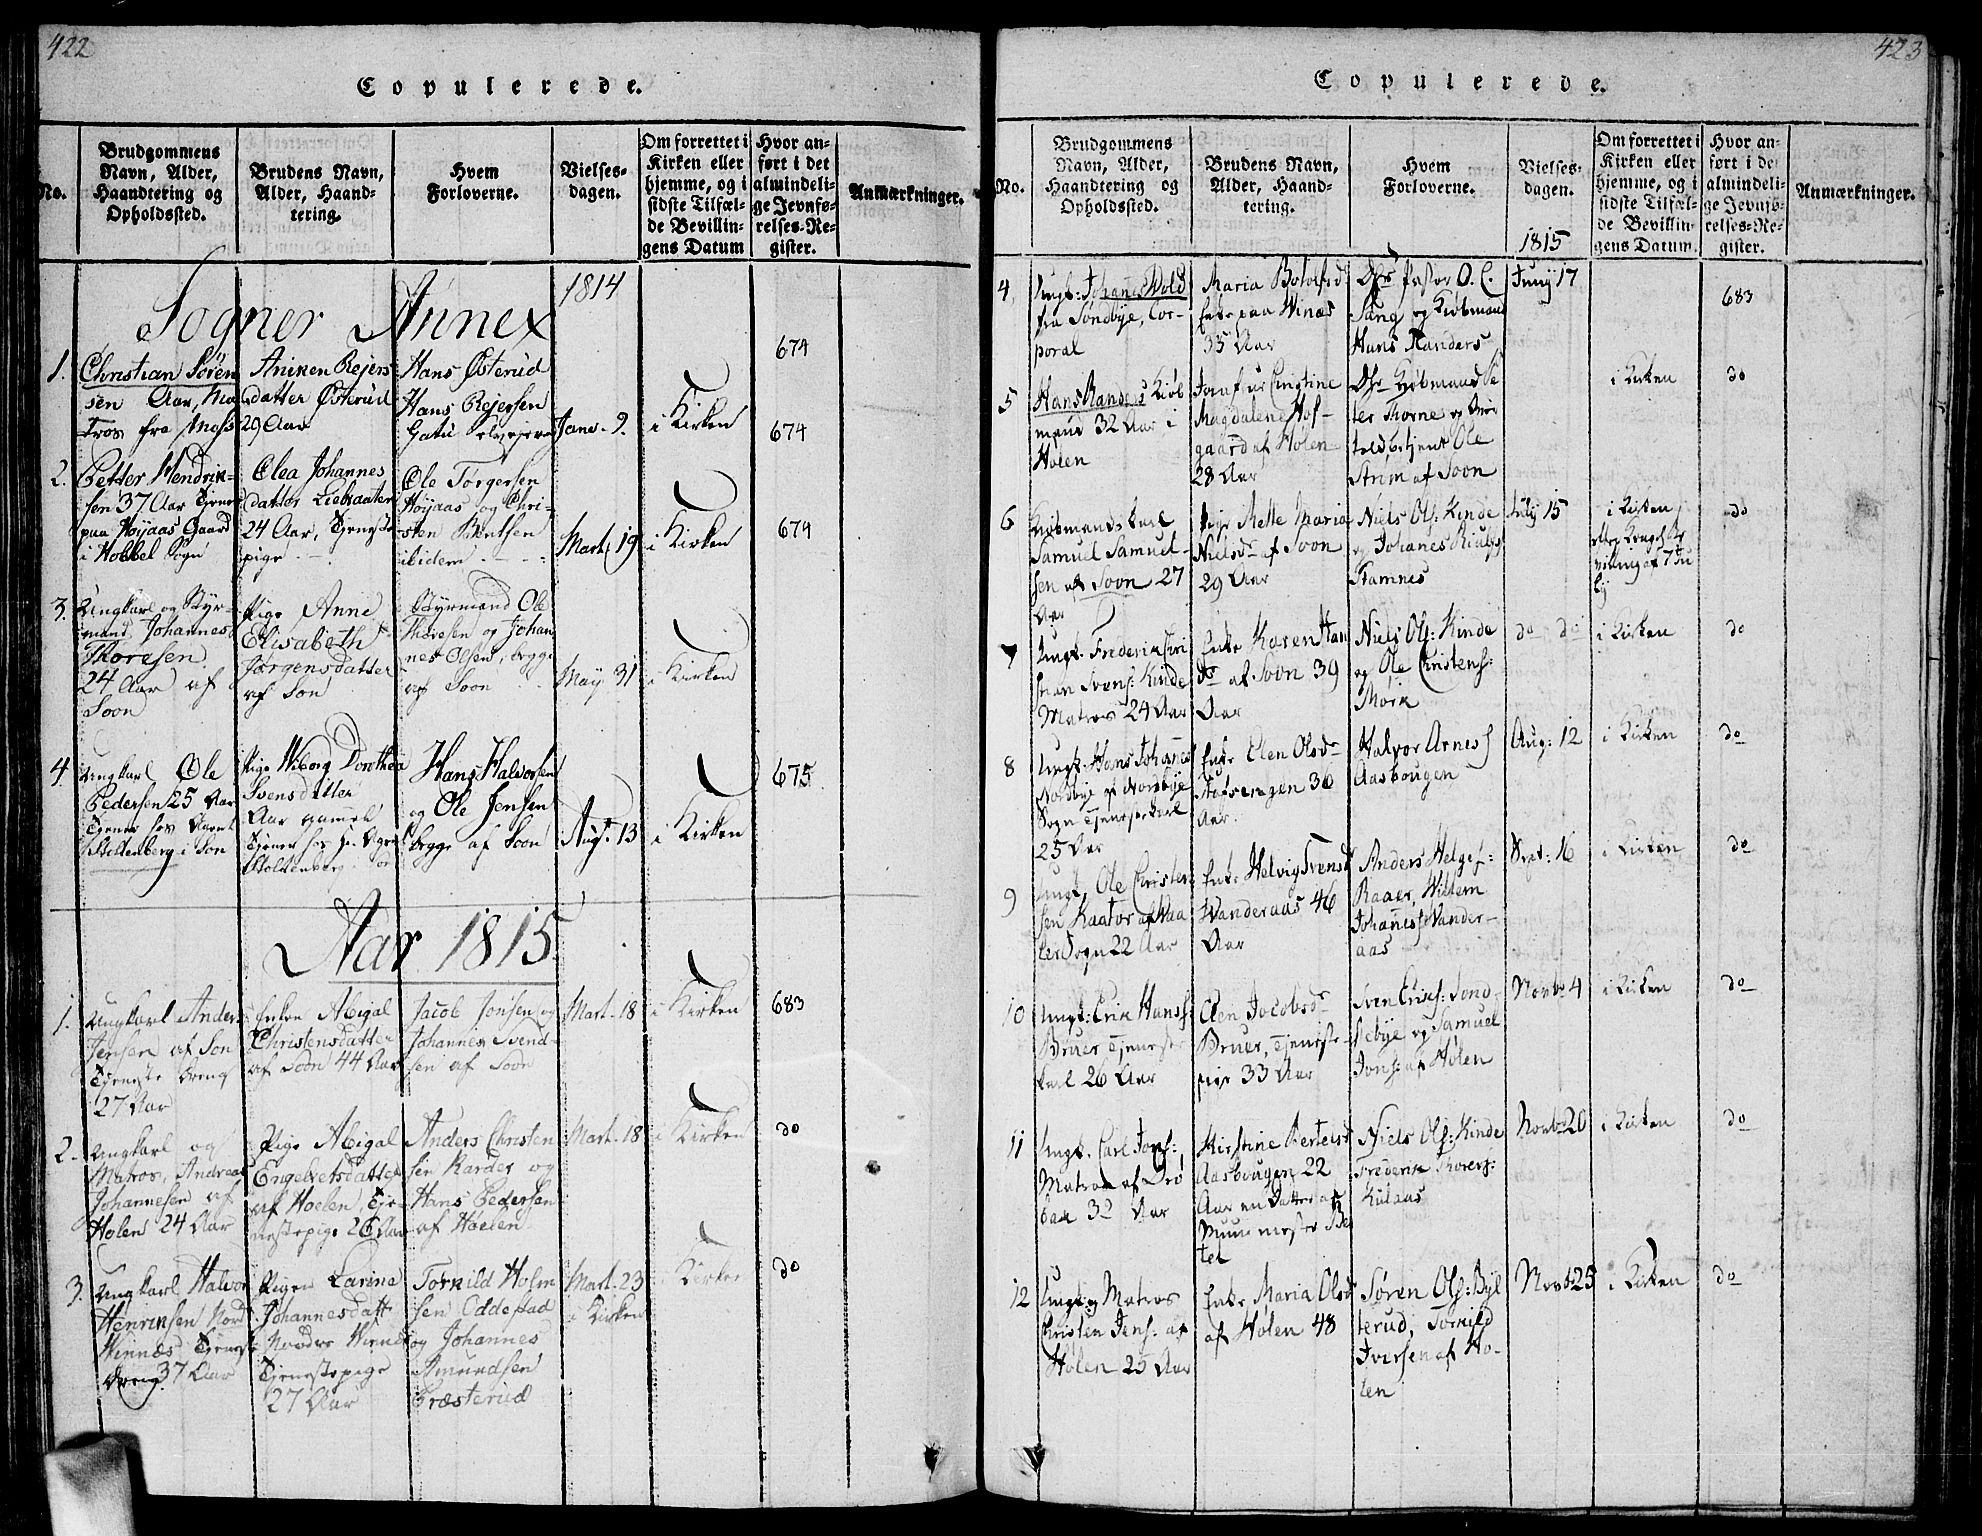 422
Copulerede.
No.
Brudgommens
Navn, Alder,
Haandtering og
Opholdssted.
Brudens Navn,
Alder, Haand-
tering.
Hvem
Forloverne.
Vielses-
dagen.
Om forrettet i
Kirken eller
hjemme, og i
sidste Tilfæl-
de Bevillin-
gens Datum
Hvor an-
ført i det
almindeli-
ge Jevnfø-
relses-Re-
gister.
Anmærkninger.
1814
Sogner Annex
1.
Christian Søren
sen Aar, Ma
tros fra Moss
Aniken Rejers
datter Østerud
29 Aar
Hans Østerud
Hans Rejersen
Janv. 9.
i Kirken
674
2.
Petter Hendrik-
sen 37 Aar Tjener
paa Höjaas Gaard
i Hobbel Sogn
Olea Johannes
datter
24 Aar, Tjeneste
pige
Ole Torgersen
Höjaas og Chri-
sten Bentsen
ibidem
Mart. 19
i Kirken
674
3.
Ungkarl og Styr-
mand Johannes
Thoresen
24 Aar af
Soon
Pige Anne
Elisabeth
Jørgensdatter
af Son
Styrmand Ole
Thoresen og Johan
nes Olsen, begge
af Soon
May 31
i Kirken
674
4.
Ungkarl Ole
Pedersen 25 Aar
Tjener hos Agent
Stoltenberg i Son
Pige Wiborg Dorothea
Svensdatter
Aar gamel
Tjener hos Hr. Agent
Stoltenberg
Hans Halvorsen
og Ole Jensen
begge af Soon
Augt. 13
i Kirken
675
Aar 1815
1.
Ungkarl Anders
Jensen af Son
Tjeneste Dreng
27 Aar
Enken Abigal
Christensdatter
af Soon 44 Aar
Jacob Jonsen og
Johannes Svend-
sen af Soon
Mart. 18
i Kirken
683
2.
Ungkarl og
Matros, Andreas
Johannesen af
Holen 24 Aar
Pige Abigal
Engelbretsdatter
af Hoelen, Tje-
nestepige 26 Aar
Anders Christen
sen Rarder og
Hans Pedersen
af Hoelen
Mart. 18
i Kirken
do
3.
Ungkarl Halvor
Henriksen Nord
Winnæs Tjeneste
Dreng 37 Aar
Pigen Larine
Johannesdatt
Nordre Winnæs
Tjenestepige
27 Aar
Torkild Holm
sen Oddestad
og Johannes
Amundsen
Træsterud
Mart. 23
i Kirken
i Kirken
do
423
Copulerede.
No.
Brudgommens
Navn, Alder,
Haandtering og
Opholdssted.
Brudens Navn,
Alder, Haand-
tering.
Hvem
Forloverne.
Vielses-
dagen.
1815
Om forrettet i
Kirken eller
hjemme, og i
sidste Tilfæl-
de Bevillin-
gens Datum.
Hvor an-
ført i de
almindeli-
ge Jevnfø-
relses-Re-
gister.
Anmærkninger.
4
Ungk: Johanes Wold
fra Sondbye, Cor-
poral
Maria Botolfsd
Enke paa Winæs
35 Aar
Dhr. Pastor O. C.
Sang og Kiøbmand
Hans Randers
Juny 17
683
5
Hans Randers Kiøb
mand 32 Aar i
Holen
Jomfrur Cirstine
Magdalene Hof-
gaard af Holen
28 Aar
Dhr Kjøbmand Pe
ter Thorne og
toldbetjent Ole
Strøm af Soon
i Kirken
do
6
Kiøbmands Karl
Samuel Samuel-
sen af Soon 27
Aar
Pige Mette Maria
Nielsdr af Soon
29 Aar
Niels Ols: Kinde
og Johanes
Stamnes
July 15
i Kirken
efter Kongel: Be
vilning af 7de Ju
ly
do
7
Ungk: Frederik Cri
stian Svens: Kinde
Matros 24 Aar
Enke Karen Han
sdr af Soon 39
Aar
Niels Ols: Kinde
og Ole Christens:
Mörk
do do
i Kirken
do
8
Ungk: Hans Johanes
Nordbye af Nordbye
Sogn Tjenestekarl
25 Aar
Enke Elen Olsdr
Stafsengen 36
Aar.
Halvor Arnes
Aasbougen
Aug: 12
i Kirken
do
9
Ungk. Ole Christen
sen Kaatorp Waa
ler Sogn 22 Aar
Enke Helvig Svensd
Wanderaas 46
Aar
Anders Helges:
Raaer, Willem
Johaness Wander-
aas
Sept: 16
i Kirken
do
10
Ungk: Erik Hanss:
Bruer Tjeneste
karl 26 Aar
Elen Jacobsdr
Bruer, Tjeneste-
pige 33 Aar
Sven Erics: Sond-
bye og Samuel
Jons: af Hølen
Novbr 4
i Kirken
do
11
Ungk. Carl Jons:
Matros af Drö
bak 32 Aar
Kirstine Bertelsd
Aasbougen 22
Aar en Datter af
Muurmester Ber
tel
Niels Ols: Kinde
Frederik Thorers:
Kulaas
Novbr 20
i Kirken
do
12
Ungk. og Matros
Christen Jens: af
Hølen 25 Aar
Enke Maria Olsd
af Hølen 48
Søren Ols: Byl
terud, Torkild
Iversen af Hø-
len
Novbr 25
i Kirken
do